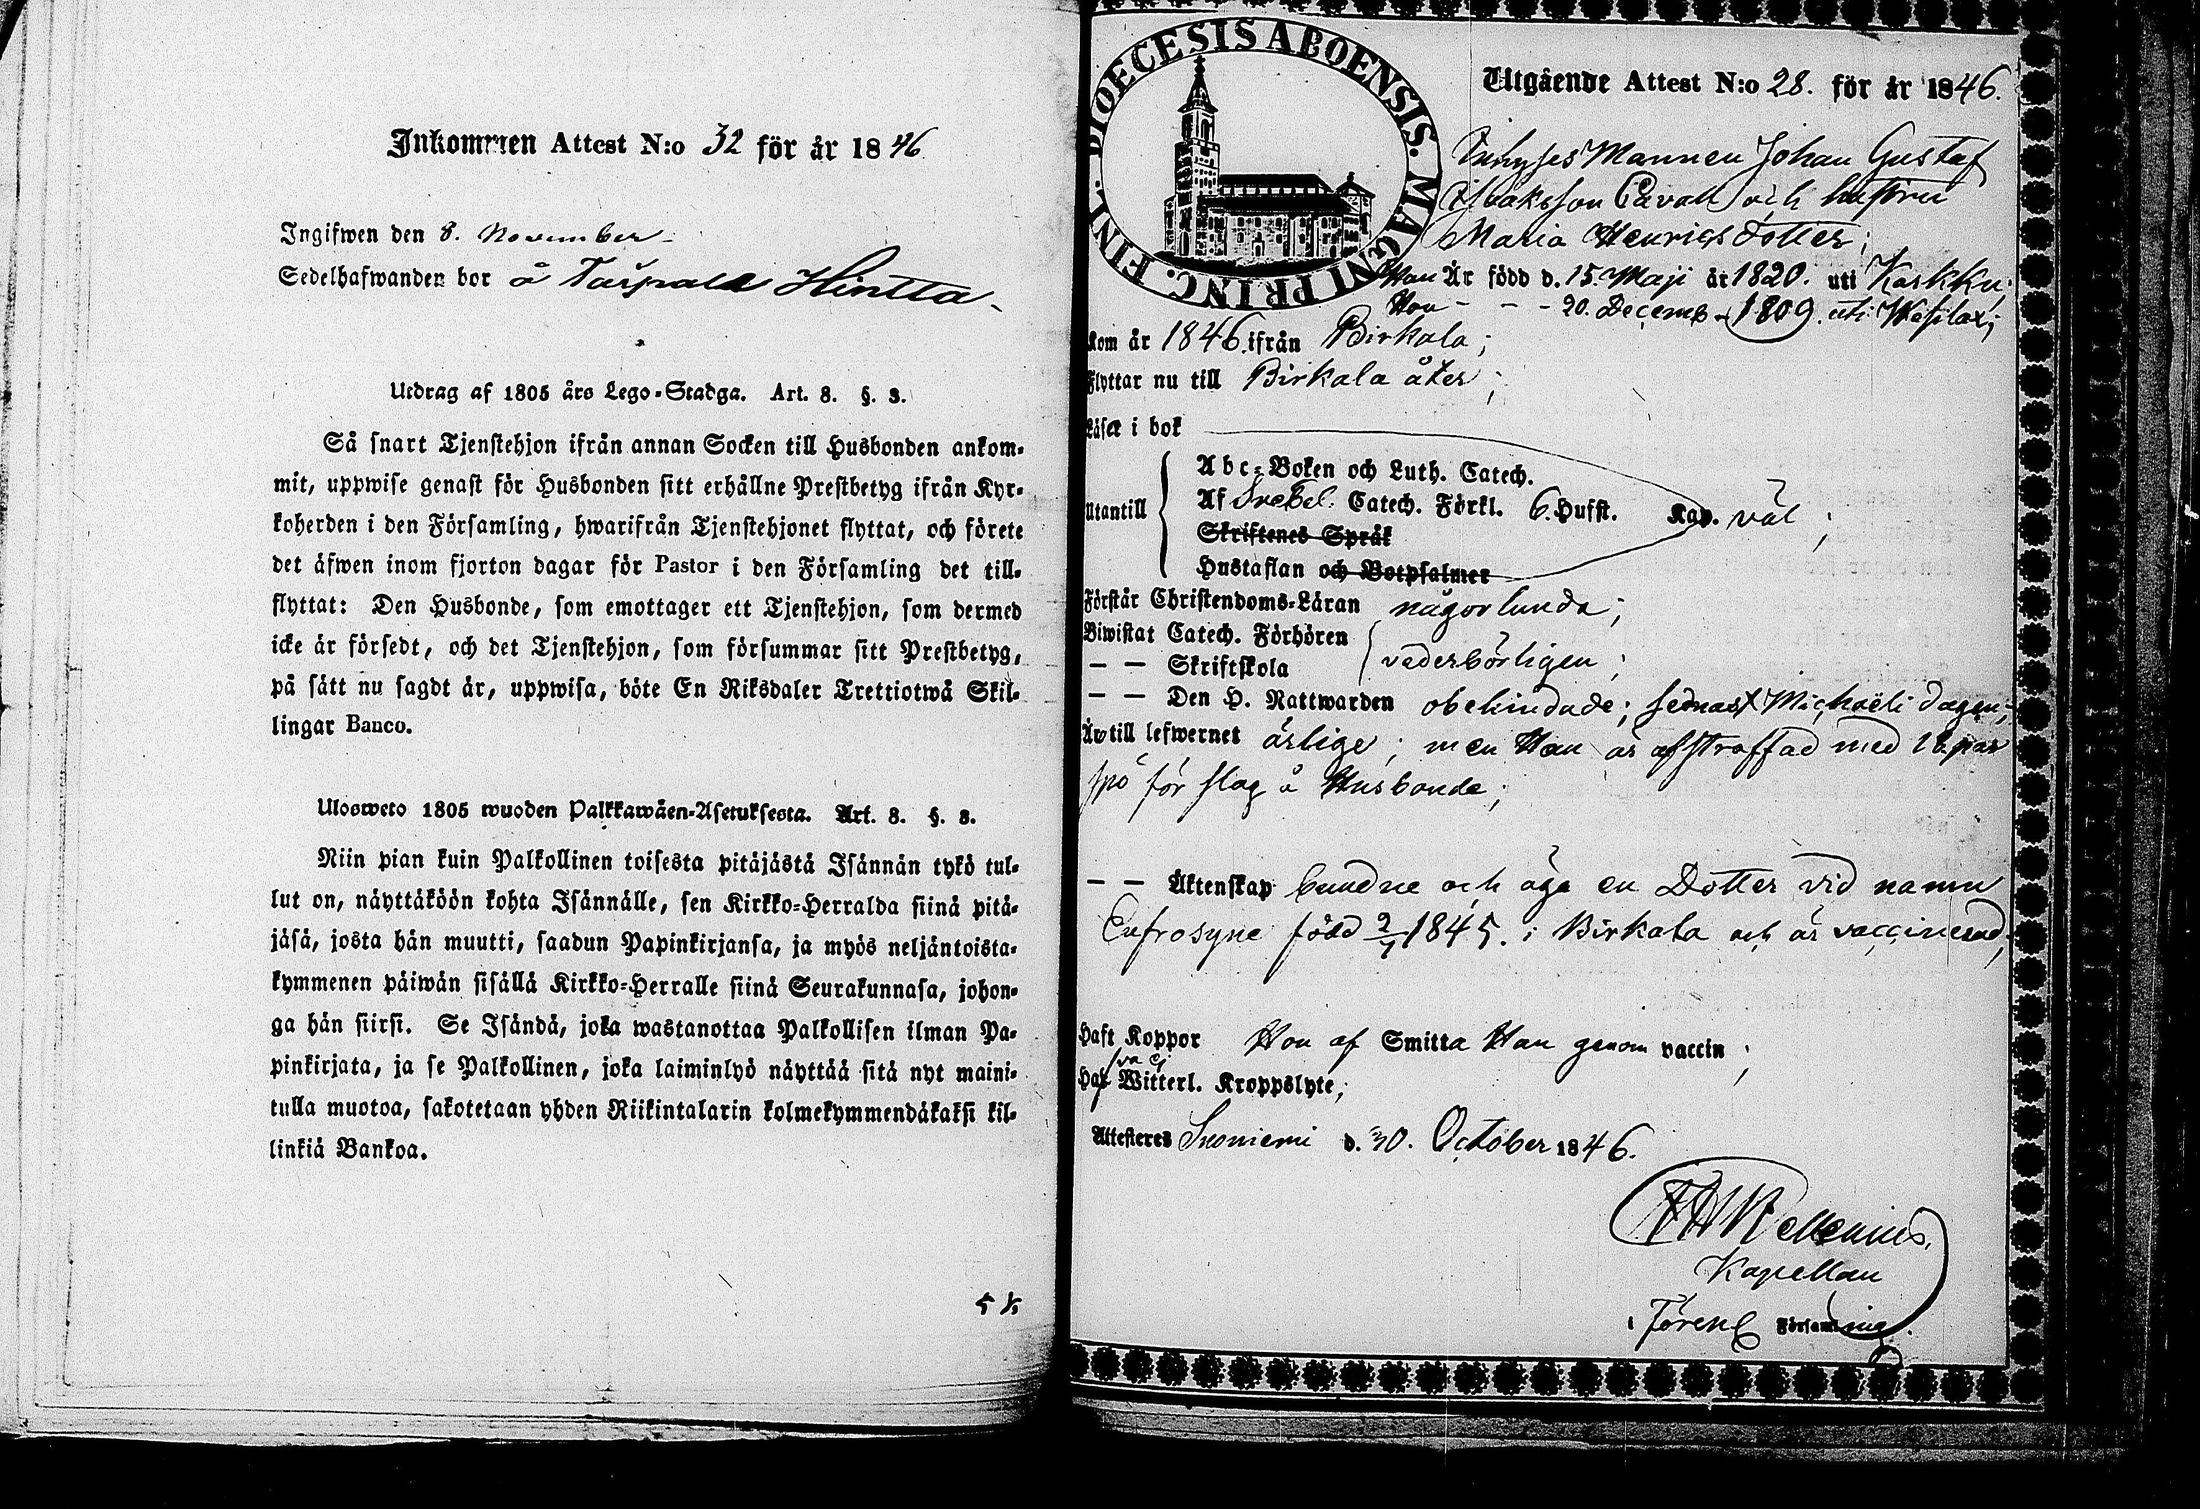 Inkommen Attest N:o 32 för år 1846
Ingifwen den 8. November
Sedelhafwanden bor å Taipale Hintta
Utdrag af 1805 års Lego-Stadga. Art. 8. §. 3.
Så snart Tjenstehjon ifrån annan Socken till Husbonden ankom-
mit, uppwise genast för Husbonden sitt erhållne Prestbetyg ifrån Kyr-
koherden i den Församling, hwarifrån Tjenstehjonet flyttat, och förete
det äfwen inom fjorton dagar för Pastor i den Församling det till-
flyttat: Den Husbonde, som emottager ett Tjenstehjon, som dermed
icke är försedt, och det Tjenstehjon, som försummar sitt Prestbetyg,
på sätt nu sagdt är, uppwisa, böte En Riksdaler Trettiotwå Skil-
lingar Banco.
Ulosweto 1805 wuoden Palkkawäen-Asetuksesta. Art. 8. §. 3.
Niin pian kuin Palkollinen toisesta pitäjästä Isännän tykö tul-
lut on, näyttäköön kohta Isännälle, sen Kirkko-Herralda siinä pitä-
jäsä, josta hän muutti, saadun Papinkirjansa, ja myös neljäntoista-
kymmenen päiwän sisällä Kirkko-Herralle siinä Seurakunnasa, johon-
ga hän siirsi. Se Isändä, joka wastanottaa Palkollisen ilman Pa-
pinkirjata, ja se Palkollinen, joka laiminlyö näyttää sitä nyt maini-
tulla muotoa, sakotetaan yhden Riikintalarin kolmekymmendäkaksi kil-
linkiä Bankoa.
DIOECESIS ABOENSIS. MAGNI PRINC. FINL.
Utgående Attest N:o 28. för år 1846.
Inhyses Mannen Johan Gustaf
Isaksson och hustru
Maria Henricsdotter;
Han Är född d. 15. Maji år 1820. uti Karkku;
Hon - - - 20. Decemb. 1809. uti Wesilax;
Kom år 1846. ifrån Birkala;
Flyttar nu till Birkala åter;
Läser i bok
Abc-Boken och Luth. Catech.
Utantill Af Svebel. Catech. Förkl. 6. Hufst. Kap. väl;
Skriftenes Språk
Hustaflan och Botpsalmer
Förstår Christendoms-Läran någorlunda;
Biwistat Catech. Förhören
— — Skriftskola vederbörligen;
— — Den H. Nattwarden obehindrade; sednast Michaëli dagen;
Är till lefwernet ärlige; men Han är afstraffad med par
spö för slag å Husbonde;
— — Äktenskap bundne och äga en Dotter vid namn
Eufrosyne född 1845. i Birkala och är vaccinerad,
Haft Koppor Hon af Smitta Han genom vaccin;
Hafva ej Witterl. Kroppslyte;
Attesteres Suoniemi d. 30. October 1846.
Kapellan
i Församling.